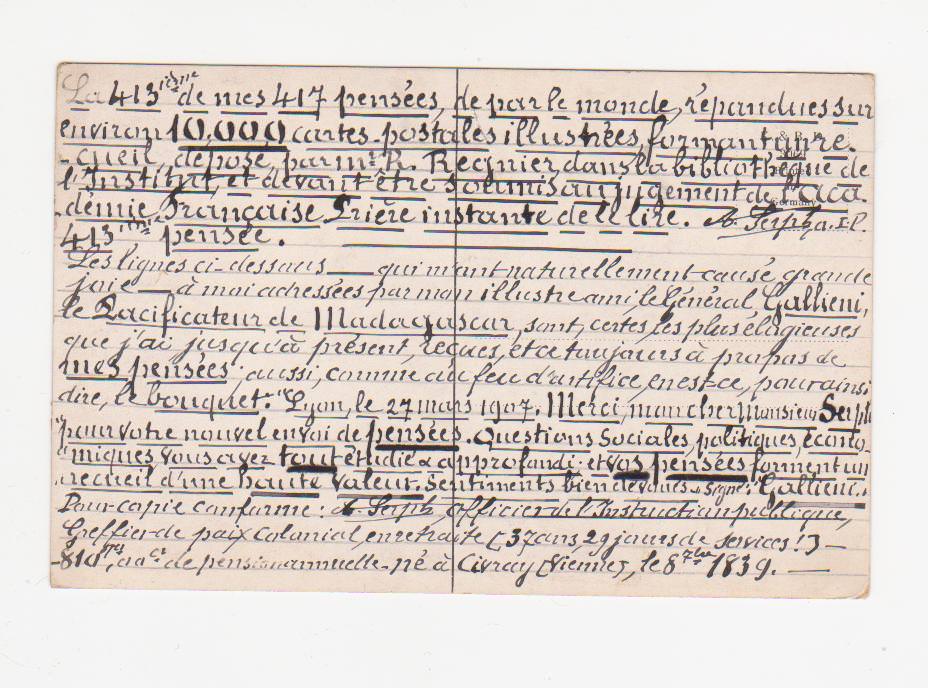 La 413ième de mes 417 pensées, de par le monde, répandues sur
environ 10,000 cartes-postales illustrées, formant un re-
-cueil, déposé, par mr. R. Regnier dans la bibliothèque de
l'Institut, et devant être soumis au jugement de l'Aca-
démie Française Prière instante de le lire. A. Serph, a. I. P.
413ième pensée.
Les lignes ci-dessous — qui m'ont naturellement causé grande
joie — à moi adressées par mon illustre ami, le Général Gallieni,
le Pacificateur de Madagascar, sont, certes, les plus élogieuses
que j'ai jusqu'à présent, reçues, et ce toujours à propos de
mes pensées; aussi, comme au feu d'artifice, en est-ce, pour ainsi
dire, le bouquet: "Lyon, le 27 mars 1907. Merci, mon cher Monsieur Serph
"pour votre nouvel envoi de pensées. Questions Sociales, politiques, écono-
"miques, vous avez tout étudié & approfondi; et vos pensées forment un
"recueil d'une haute valeur. Sentiments bien dévoués. Signé: "Gallieni."
Pour copie conforme: A. Serph, Officier de l'Instruction publique,
Greffier de paix Colonial, en retraite [37 ans, 29 jours de Services!] —
-810 de pension annuelle - né à Civray [Vienne], le 8 1839. —
Germany